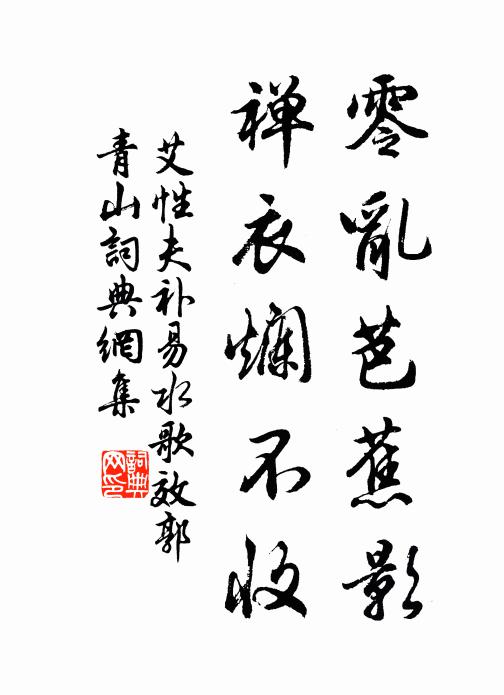 零亂芭蕉影
禅衣爛不收
艾性夫补易水歌效郭
青山詞典網集
詞典网印